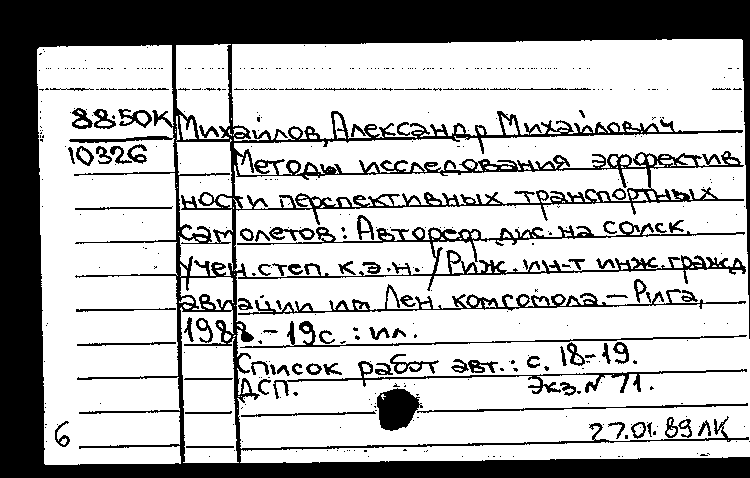 88.50К Михайлов, Александр Михайлович.
10326 Методы исследования эффектив
ности перспективных транспортных
самолетов: Автореф дис. на соиск.
учен. степ. к.э.н. /Риж. ин-т инж. гражд
авиации им Лен. комсомола.– Рига,
1988.– 19с. : ил.
Список работ авт. : с. 18–19.
ДСП. Экз. № 71.
6 27.01.89 ЛК